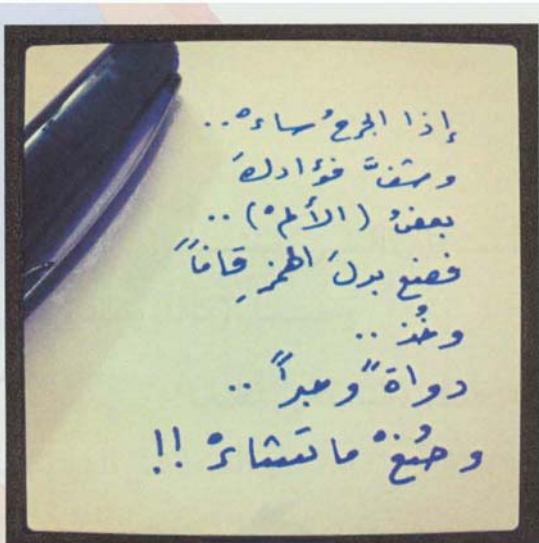 إذا الجرحُ ساءْ..
وشفَّ فؤادكَ
بعضُ (الألمْ)..
فضع بدلَ الهمزِ قافاً
وخُذ..
دواةً وحبراً..
وصُغْ ما تشاءْ !!